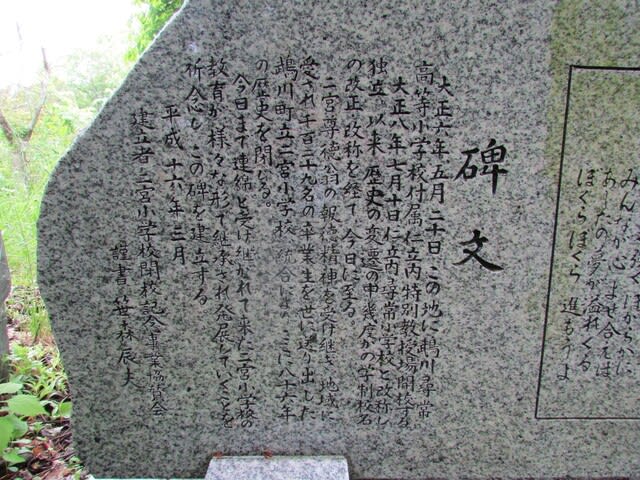 みんな
が心よせ合えば
あしたの夢が溢れくる
ほくらほくら 進もうよ
碑文
大正六年五月二十日 この地に鵡川尋常
高等小学校付属仁立内特別教授場開校す
大正八年七月十日仁立内尋常小学校と改称し
独立 以来 歴史の変遷の中幾度かの学制校名
の改正 改称を経て 今日に至る
二宮尊徳翁の報徳精神を受け継ぎ 地域に
愛され千百二十九名の卒業生を世に送り出した
鵡川町立二宮小学校 統合に ここに八十六年
の歴史を閉じる。
今日まで連綿と受け継がれて来た二宮小学校の
教育が 様々な形で継承され発展していくことを
祈念し この碑を建立する
平成十六年三月
建立者 二宮小学校閉校記念事業協賛会
謹書 笹森辰夫